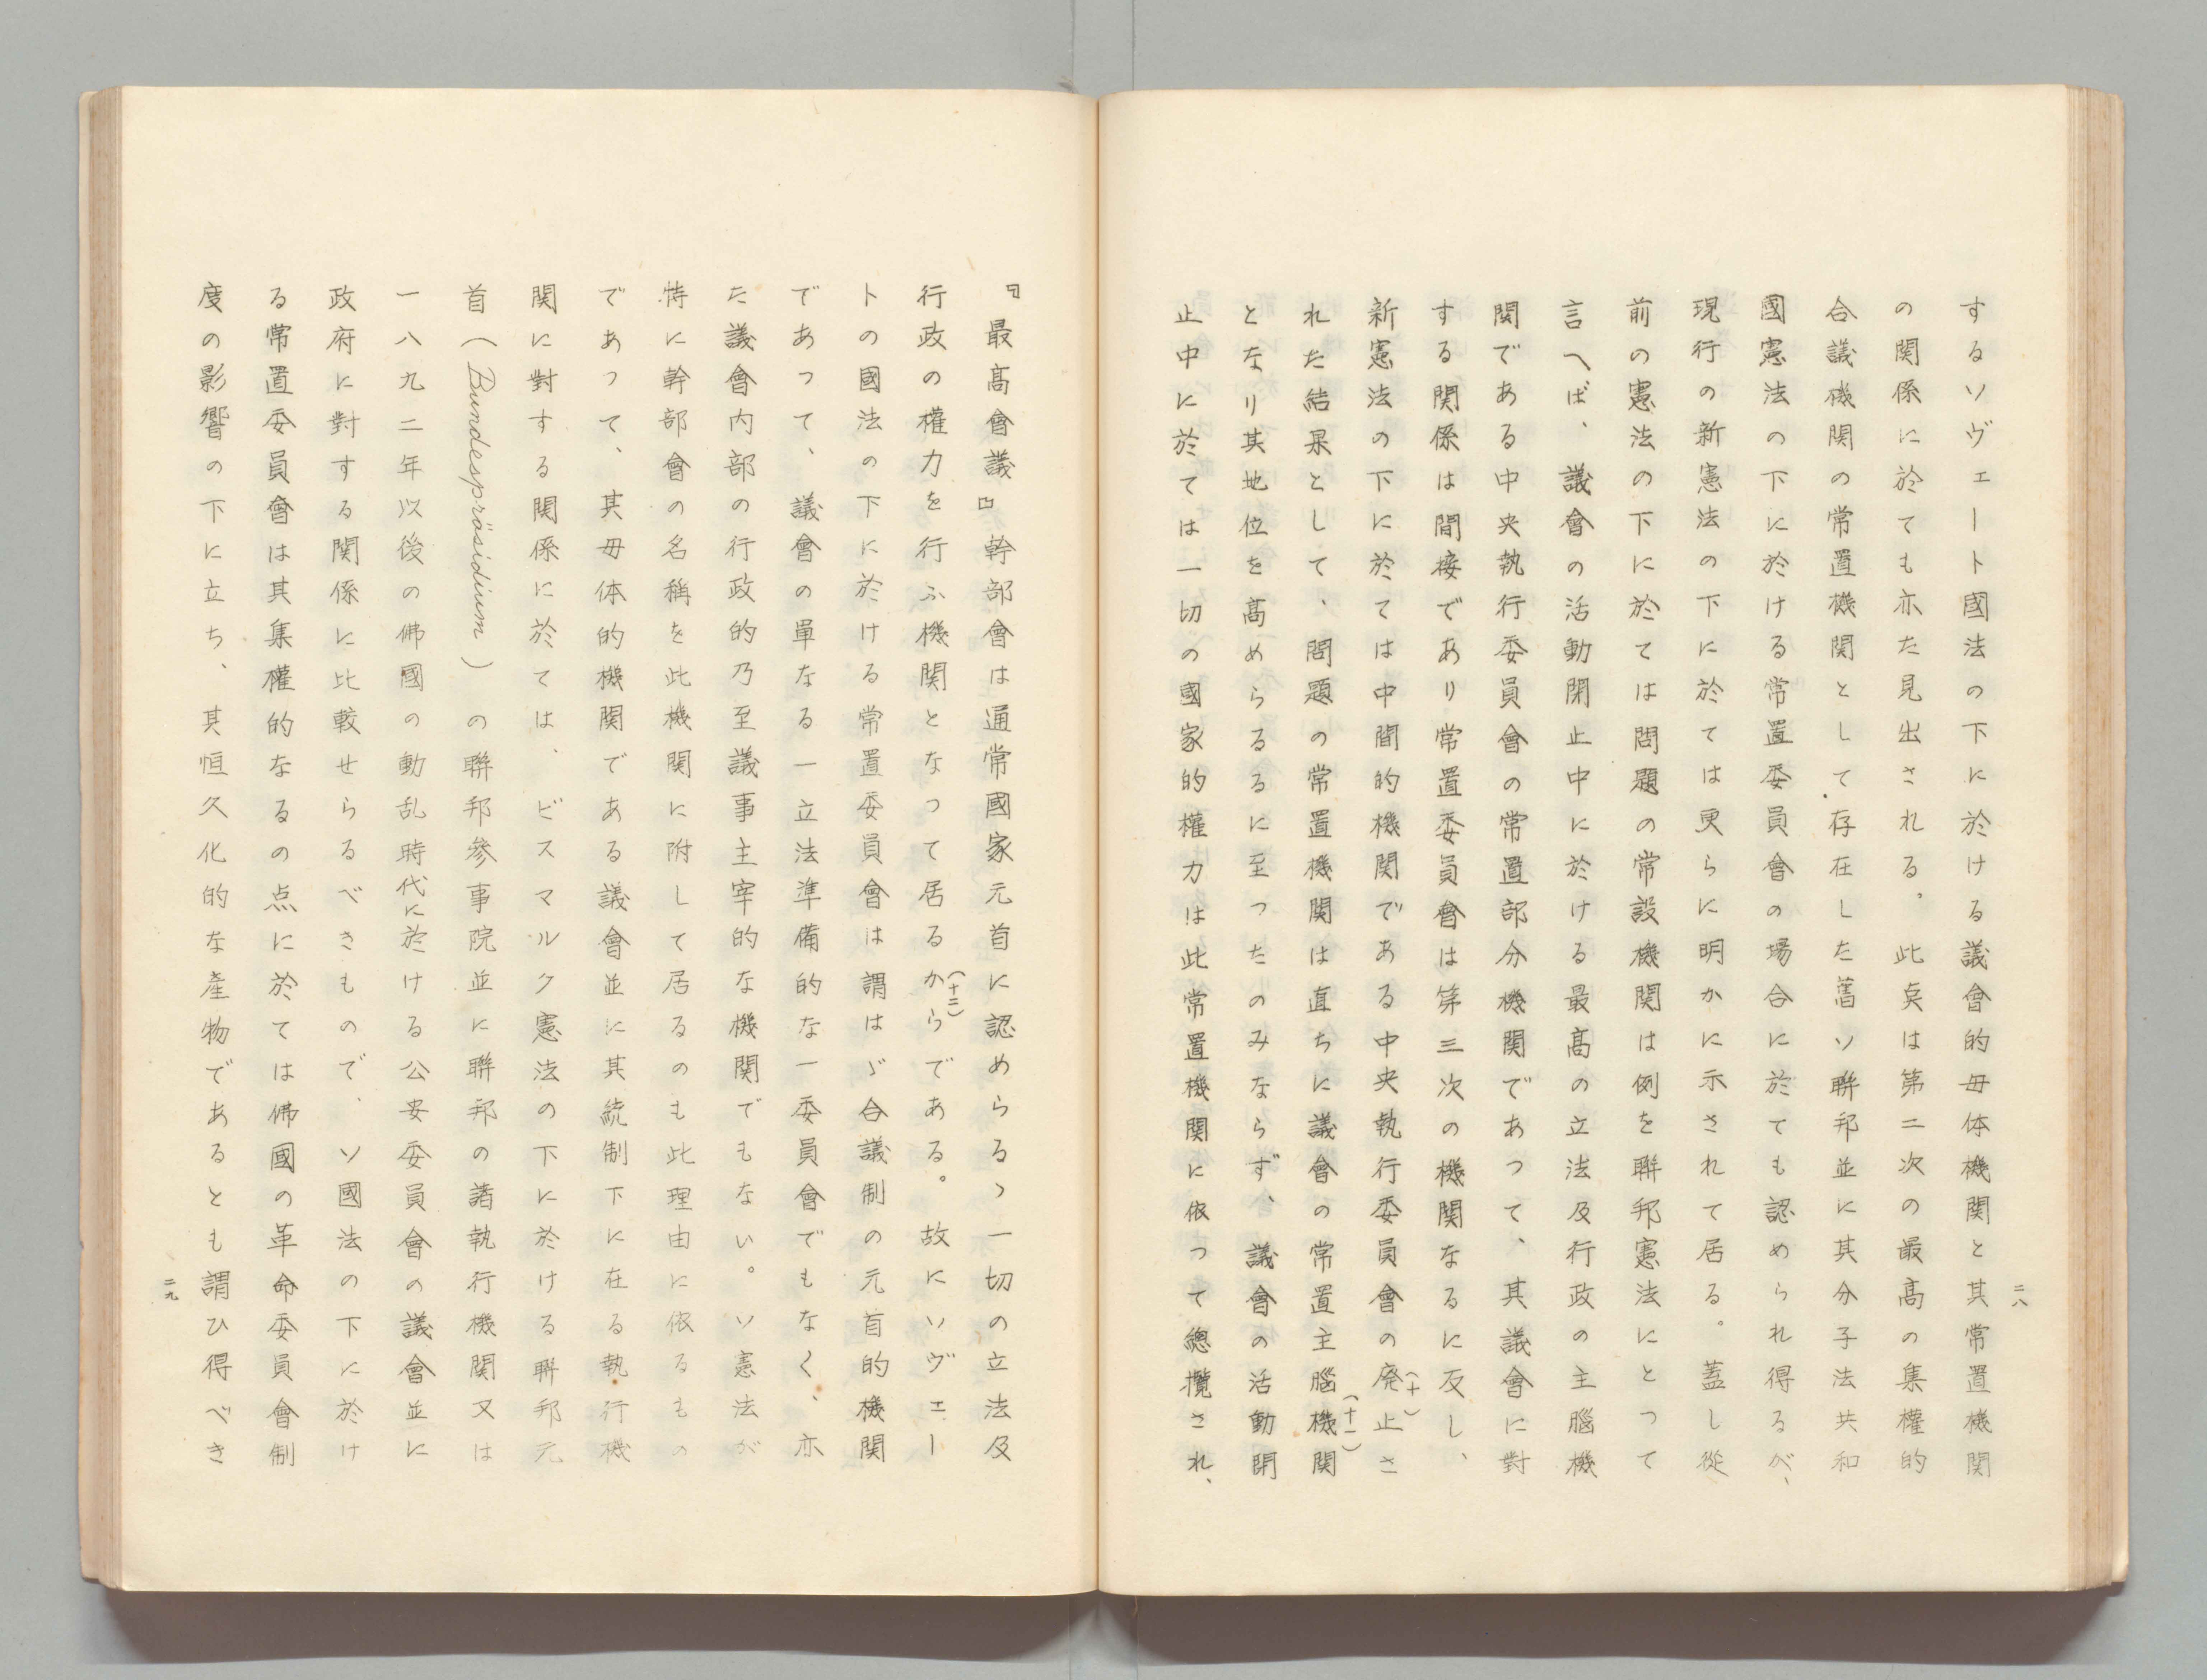 するソヴェート國法の下に於ける議會的母体機関と其常置機関
の関係に於ても亦た見出される。此点は第二次の最髙の集權的
合議機関の常置機関として存在した舊ソ聯邦並に其分子法共和
國憲法の下に於ける常置委員會の場合に於ても認められ得るが、
現行の新憲法の下に於ては更らに明かに示されて居る。蓋し從
前の憲法の下に於ては問題の常設機関は例を聯邦憲法にとつて
言へば、議會の活動閉止中に於ける最髙の立法及行政の主腦機
関である中央執行委員會の常置部分機関であつて、其議會に對
する関係は間接であり常置委員會は第三次の機関なるに反し、
新憲法の下に於ては中間的機関である中央執行委員會の廃止さ
(十)
れた結果として、問題の常置機関は直ちに議會の常置主腦機関
(十一)
となり其地位を髙めらるるに至つたのみならず、議會の活動閉
止中に於ては一切の國家的權力は此常置機関に依つて總攬され、
二八
『最髙會議』幹部會は通常國家元首に認めらるゝ一切の立法及
行政の權力を行ふ機関となつて居るからである。故にソヴェー
(十二)
トの國法の下に於ける常置委員會は謂はゞ合議制の元首的機関
であつて、議會の單なる一立法準備的な一委員會でもなく、亦
た議會内部の行政的乃至議事主宰的な機関でもない。ソ憲法が
特に幹部會の名稱を此機関に附して居るのも此理由に依るもの
であつて、其母体的機関である議會並に其統制下に在る執行機
関に對する関係に於ては、ビスマルク憲法の下に於ける聯邦元
首(Bundespräsidium)の聯邦參事院並に聯邦の諸執行機関又は
一八九二年以後の佛國の動乱時代に於ける公安委員會の議會並に
政府に對する関係に比較せらるべきもので、ソ國法の下に於け
る常置委員會は其集權的なるの点に於ては佛國の革命委員會制
度の影響の下に立ち、其恒久化的な産物であるとも謂ひ得べき
二九